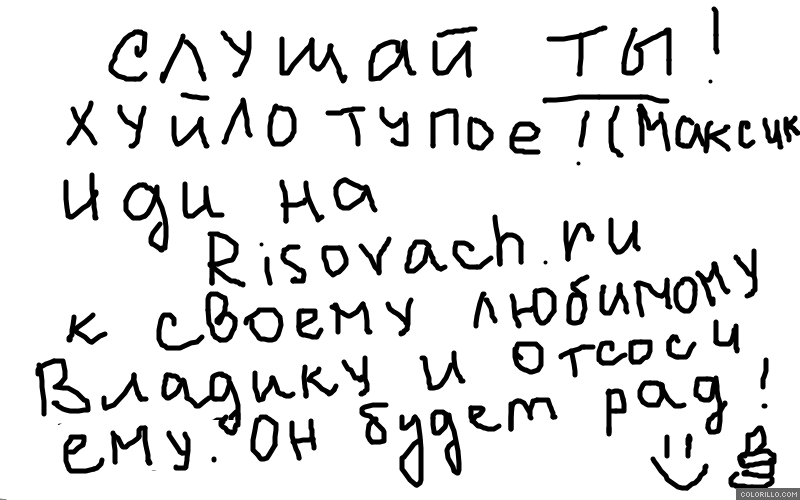 слушай ты!
хуйло тупое!(Максик
иди на
Risovach.ru
к своему любимому
Владику и отсоси
ему. Он будет рад!
COLORILLO.COM